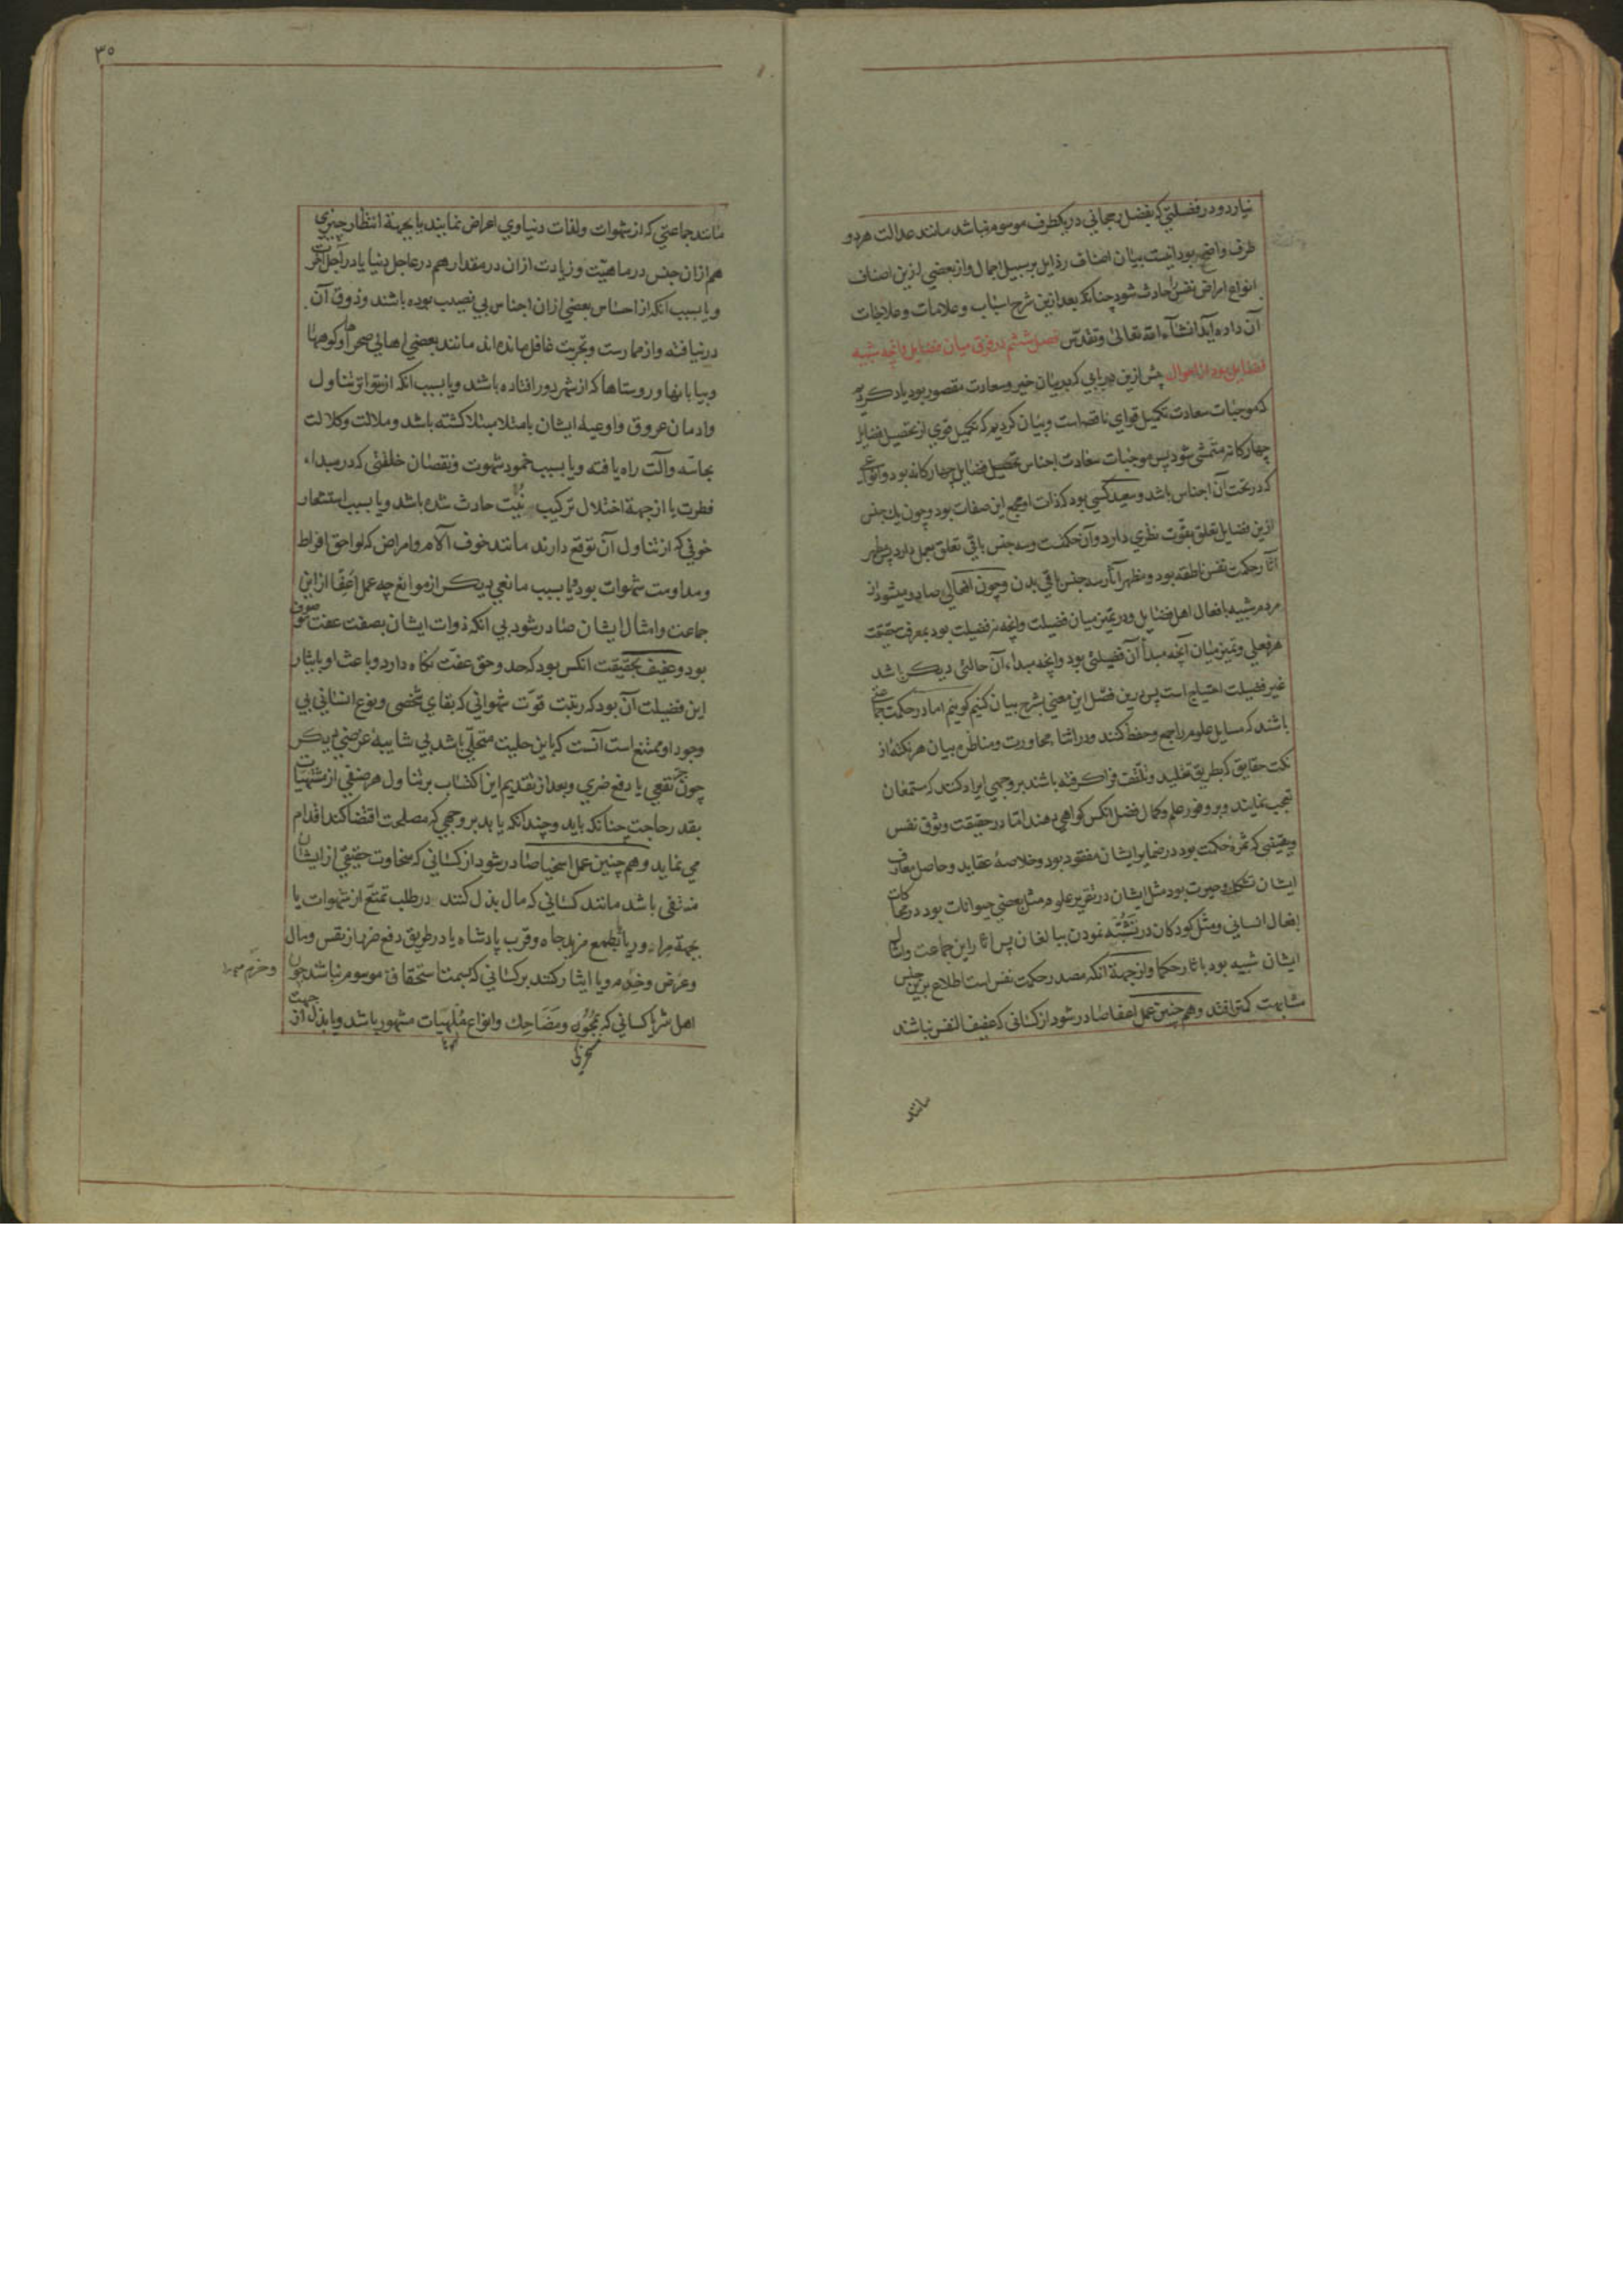 نیارد و در فضیلتی که بفضل رجحانی در یکطرف موسوم نباشد مانند عدالت هر دو
طرف واضح بود اینست بیان اصناف رذایل بر سبیل اجمال و از بعضی ازین اصناف
انواع امراض نفس حادث شود چنانکه بعد ازین شرح اسباب و علامات و علاجات
آن داده آید انشآء الله تعالی و تقدس فصل ششم در فرق میان فضایل و آنچه شبیه
فضایل بود از احوال پیش ازین در بابی که بر بیان خیر و سعادت مقصور بود یاد کردیم
که موجبات سعادت تکمیل قوای ناقصه است و بیان کردیم که تکمیل قوی از تحصیل فضایل
چهارکانه متمشی شود پس موجبات سعادت اجناس تحصیل فضایل چهارکانه بود و انواعی
که در تحت آن اجناس باشد و سعید کسی بود که ذات او مجمع این صفات بود و چون یک جنس
ازین فضایل تعلق بقوت نظری دارد و آن حکمت و سه جنس باقی تعلق بعمل دارد پس مظهر
آثار حکمت نفس ناطقه بود و مظهر آثار سه جنس باقی بدن و چون افعالی صادر میشود از
مردم شبیه بافعال اهل فضایل و در تمیز میان فضیلت و آنچه نه فضیلت بود بمعرفت حقیقت
هر فعلی و تمیز میان آنچه مبدأ آن فضیلتی بود و آنچه مبداء آن حالتی دیکر باشد
غیر فضیلت احتیاج است پس درین فصل این معنی بشرح بیان کنیم کوییم اما در حکمت جماعتی
باشند که مسایل علوم را جمع و حفظ کنند و در اثنا محاورت و مناظره بیان هر نکته از
نکت حقایق که بطریق تقلید و تلقف فرا کرفته باشند بر وجهی ایراد کنند که مستمعان
تعجب نمایند و بر وفور علم و کمال فضل انکس کواهی دهند اما در حقیقت وثوق نفس
و یقینی که ثمرهٔ حکمت بود در ضمایر ایشان مفقود بود و خلاصهٔ عقاید و حاصل معارف
ایشان تشکک و حیرت بود مثل ایشان در تقریر علوم مثل بعضی حیوانات بود در محاکات
افعال انسانی و مثل کودکان در تشبه نمودن ببالغان پس آثار این جماعت و امثال
ایشان شبیه بود باثار حکما و از جهة آنکه مصدر حکمت نفس است اطلاع برین جنس
مشابهت کمتر افتد و هم چنین عمل اعفا صادر شود از کسانی که عفیف النفس نباشند
مانند
۳۵
مانند جماعتی که از شهوات و لذات دنیاوی اعراض نمایند یا بجهة انتظار چیزی
هم ازان جنس در ماهیت و زیادت ازان در مقدار هم در عاجل دنیا یا در آجل آخرت
و یا بسبب آنکه از احساس بعضی ازان اجناس بی نصیب بوده باشند و ذوق آن
درنیافته و از ممارست و تجربت غافل مانده اند مانند بعضی اهالی صحراها و کوهها
و بیابانها و روستاها که از شهر دور افتاده باشند و یا بسبب آنکه از تواتر تناول
و ادمان عروق و اوعیهٔ ایشان بامتلا مبتلا کشته باشد و ملالت و کلالت
بحاسه و آلت راه یافته و یا بسبب خمود شهوت و نقصان خلقتی که در مبداء
فطرت یا از جهة اختلال ترکیب بنیت حادث شده باشد و یا بسبب استشعار
خوفی که از تناول آن توقع دارند مانند خوف آلام و امراض که لواحق افراط
و مداومت شهوات بود یا بسبب مانعی دیکر از موانع چه عمل اعفا ازین
جماعت و امثال ایشان صادر شود بی آنکه ذوات ایشان بصفت عفت موصوف
بود و عفیف بحقیقت انکس بود که حد و حق عفت نکاه دارد و باعث او بایثار
این فضیلت آن بود که رغبت قوت شهوانی که بقای شخصی و نوع انسانی بی
وجود او ممتنع است آنست که باین حلیت متحلی باشد بی شایبهٔ غرضی دیکر
چون جر نفعی یا دفع ضرری و بعد از تقدیم این اکتساب بر تناول هر صنفی از مشتهیات
بقدر حاجت چنانکه باید و چندانکه باید بر وجهی که مصلحت اقتضا کند اقدام
می نماید و هم چنین عمل اسخیا صادر شود از کسانی که سخاوت حقیقی از ایشان
منتفی باشد مانند کسانی که مال بذل کنند در طلب تمتع از شهوات یا
بجهة مراء و ریا یا بطمع مزید جاه و قرب پادشاه یا در طریق دفع ضرر از نفس و مال
و عرض و خدم و یا ایثار کنند بر کسانی که بسمت استحقاق موسوم نباشد چون
اهل شر یا کسانی که بمجون و مضاحک و انواع ملهیات مشهور باشد و یا بذل از جهت